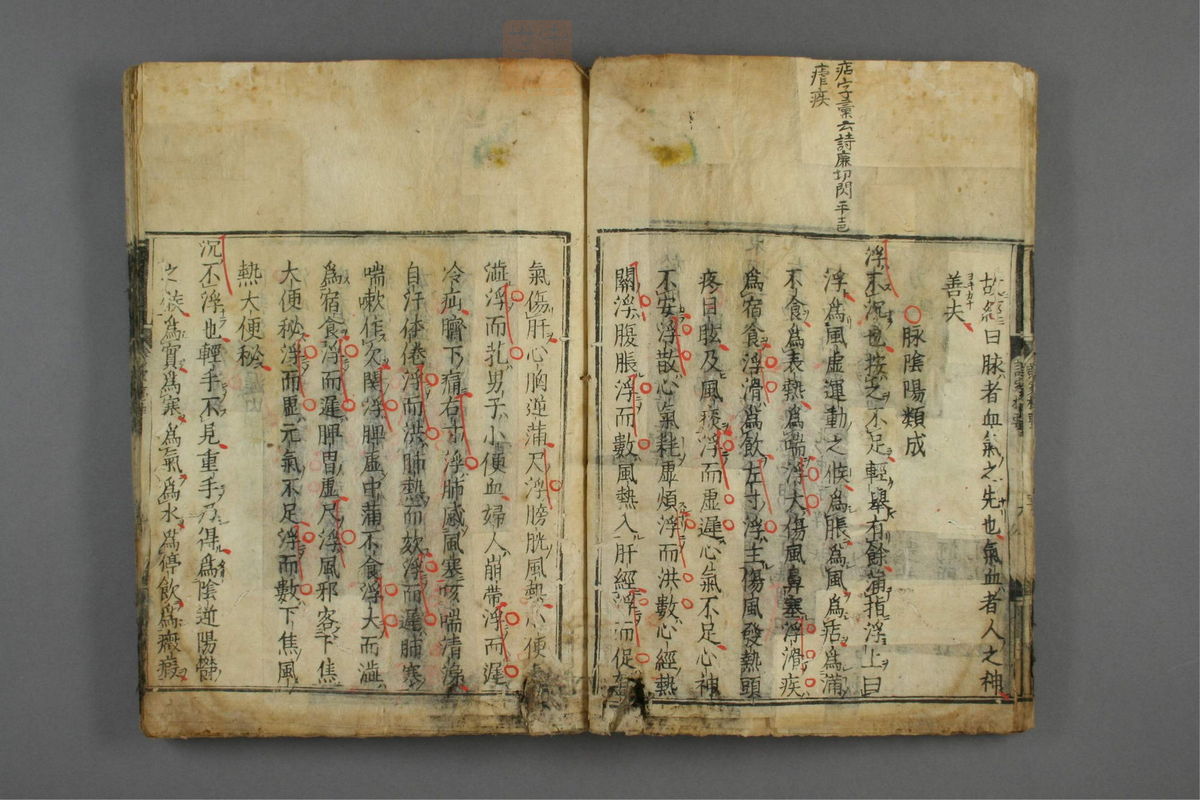 痁字彙云詩廉切閃平声
瘧疾
故經曰脉者血氣之先也氣血者人之神
善夫
脉陰陽類成
浮不沉也按之不足輕舉有餘滿指浮上曰
浮為風虛運動之候為脹為風為痁為滿
不食為表熱為喘浮大傷風鼻塞浮滑疾
為宿食浮滑為飲左寸浮主傷風發熱頭
疼目眩及風痰浮而虛遲心氣不足心神
不安浮散心氣耗虛煩浮而洪數心經熱
關浮腹脹浮而數風熱入肝經浮而促
氣傷肝心胸逆滿尺浮膀胱風熱小便
澁浮而芤男子小便血婦人崩帶浮而遲
冷疝臍下痛右寸浮肺感風寒咳喘清涕
自汗体倦浮而洪肺熱而欬浮而遲肺寒
喘嗽作欠關浮脾虛中滿不食浮大而澁
為宿食浮而遲脾胃虛尺浮風邪客下焦
大便秘浮而虛元氣不足浮而數下焦風
熱大便秘
沉不浮也輕手不見重手乃得為陰逆陽鬱
之候為實為寒為氣為水為停飲為癥瘕